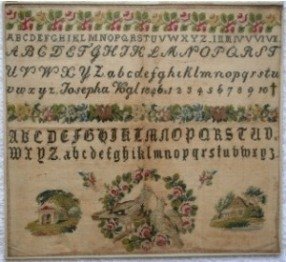 ABCDEFGHIJKLMNOPQRSTUVWXYZ. I II III IV V VI VII
ABCDEFGHIJKLMNOPQRST
UVWXYZ abcdefghiklmnopqrstu
vwxyz. Josepha 1 2 3 4 5 6 7 8 9 10
ABCDEFGHIJKLMNOPQRSTUV.
WXYZ. abcdefghiklmnopqrstuvwxyz